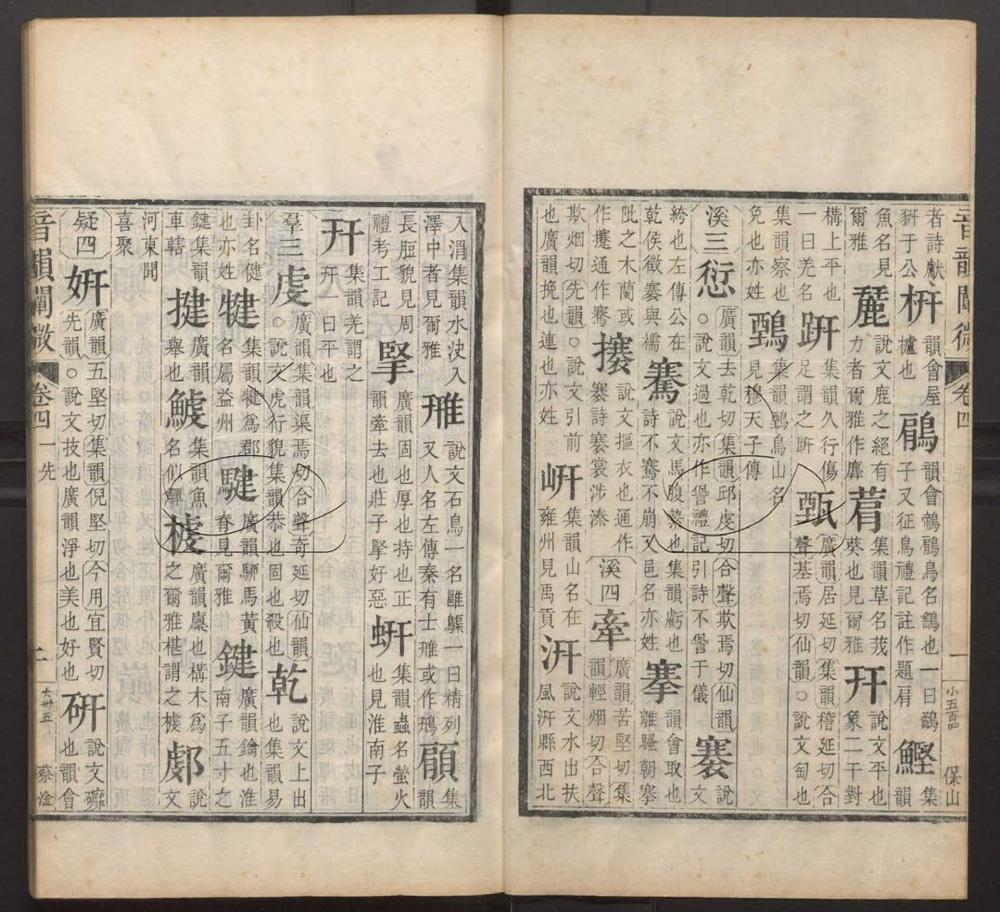 者詩獻豜于公枅韻會屋櫨也鳽韻會鶺鳽鳥名鶺也一曰鵠子又征鳥禮記註作題肩鰹集韻
魚名見爾雅麉說文鹿之絕有力者爾雅作麏菺集韻草名茙葵也見爾雅幵說文平也象二干對
構上平也一曰羌名趼集韻久行傷足謂之趼甄廣韻居延切集韻稽延切合聲基焉切仙韻○說文匋也
集韻察也免也亦姓鄄集韻鄄鳥山名見穆天子傳
溪三愆廣韻去乾切集韻邱虔切合聲欺焉切仙韻○說文過也亦作諐禮記引詩不諐于儀褰說文
袴也左傳公在乾侯徵褰與襦騫說文馬腹縶也集韻虧也詩不騫不崩又邑名亦姓搴韻會取也離騷朝搴
阰之木蘭或作攓通作騫攐說文摳衣也通作褰詩褰裳涉溱溪四牽廣韻苦堅切集韻輕烟切合聲
欺烟切先韻○說文引前也廣韻挽也連也亦姓岍集韻山名在雍州見禹貢汧說文水出扶風汧縣西北
音韻闡微 卷四 一 小五百四 保山
入渭集韻水泆入澤中者見爾雅雃說文石鳥一名雝䳭一曰精列又人名左傳秦有士雃或作鳽顅集韻
長脰貌見周禮考工記掔廣韻固也厚也持也正韻牽去也莊子掔好惡蚈集韻蟲名螢火也見淮南子
幵集韻羌謂之幵一曰平也
羣三虔廣韻集韻渠焉切合聲奇延切仙韻○說文虎行貌集韻恭也固也殺也乾說文上出也集韻易
卦名健也亦姓犍集韻犍爲郡名屬益州騝廣韻駵馬黃脊見爾雅鍵廣韻鑰也淮南子五寸之
鍵集韻車轄揵廣韻舉也鰬集韻魚名似鯶榩廣韻㯳也構木爲之爾雅椹謂之榩說文
河東聞喜聚
疑四妍廣韻五堅切集韻倪堅切今用宜賢切先韻○說文技也廣韻淨也美也好也研說文䃺也韻會
音韻闡微 卷四 一先 二 大卅五 蔡淦